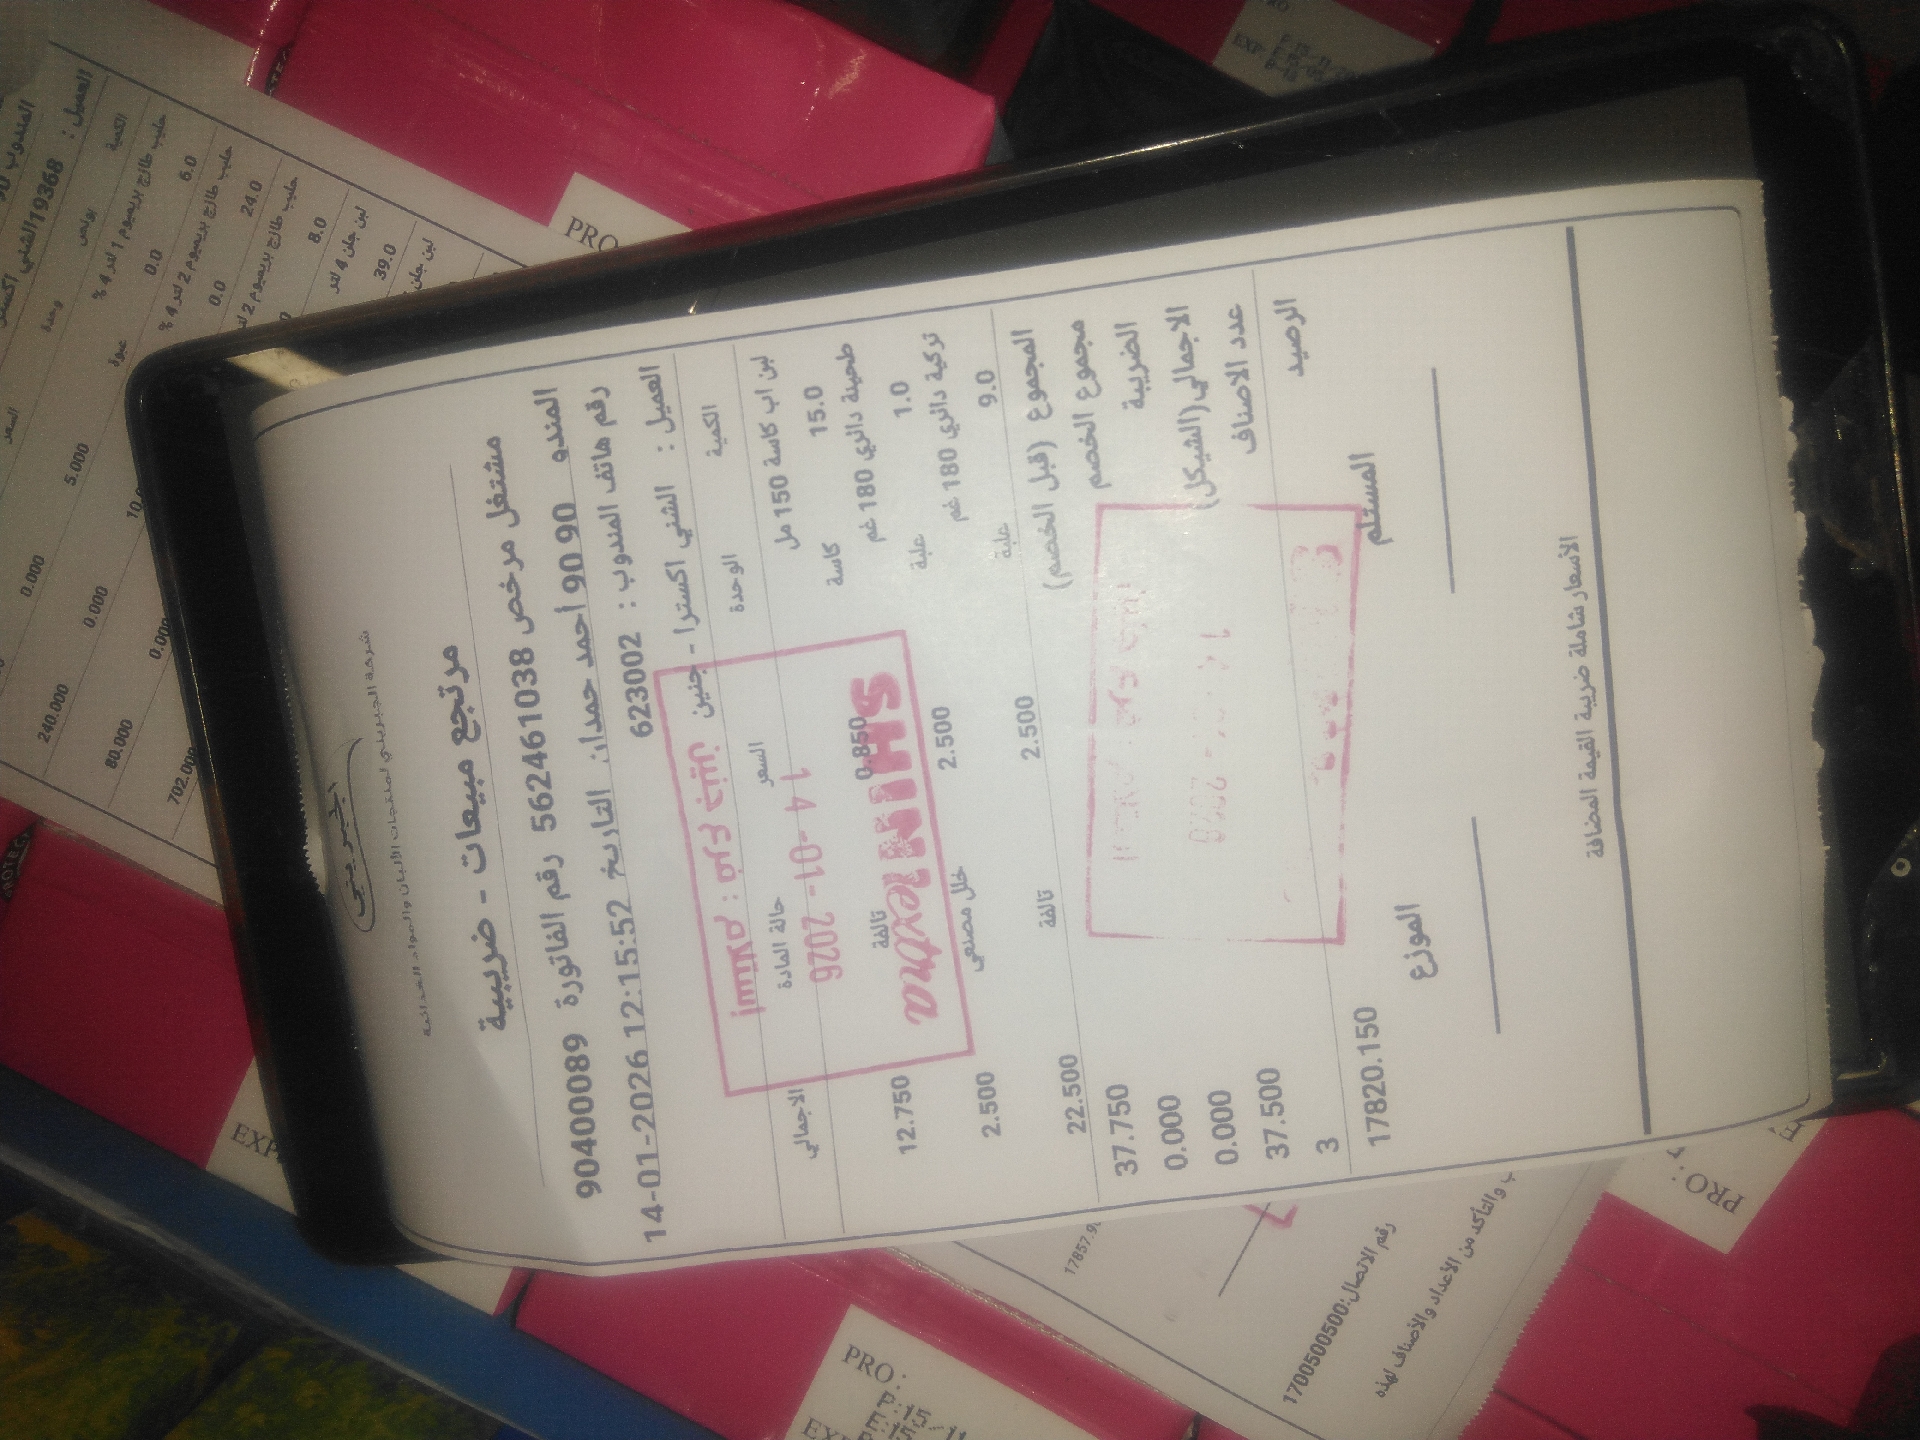 الجبريني
شركة الجبريني لمنتجات الالبان والمواد الغذائية
مرتجع مبيعات - ضريبية
مشتغل مرخص 562461038 رقم الفاتورة 90400089
المندو 90 90 احمد حمدان التاريخ 14-01-2026 12:15:52
رقم هاتف المندوب : 623002
العميل : الشني اكسترا - جنين
الكمية الوحدة السعر حالة المادة الاجمالي
لبن اب كاسة 150 مل
15.0 كاسة 0.850 تالفة 12.750
طحينة دائري 180 غم
1.0 علبة 2.500 خلل مصنعي 2.500
تركية دائري 180 غم
9.0 علبة 2.500 تالفة 22.500
المجموع (قبل الخصم) 37.750
مجموع الخصم 0.000
الضريبة 0.000
الاجمالي(الشيكل) 37.500
عدد الاصناف 3
الرصيد 17820.150
المستلم الموزع
الأسعار شاملة ضريبة القيمة المضافة
14-01-2026
SHINI extra
العميل : 19368 الشني
الكمية بونص وحدة عبوة السعر
حليب طازج بريميوم 1 لتر 4 %
6.0 0.0 5.000 0.000
حليب طازج بريميوم 2 لتر 4 %
24.0 0.0 0.000 240.000
حليب طازج بريميوم 2
8.0 0.000 80.000
لبن جلن 4 لتر
39.0 702.000
لبن جلن
رقم الاتصال:1700500500
والتأكد من الأعداد والأصناف لهذه
PRO:
EXP:
PRO:
PRO
PRO: